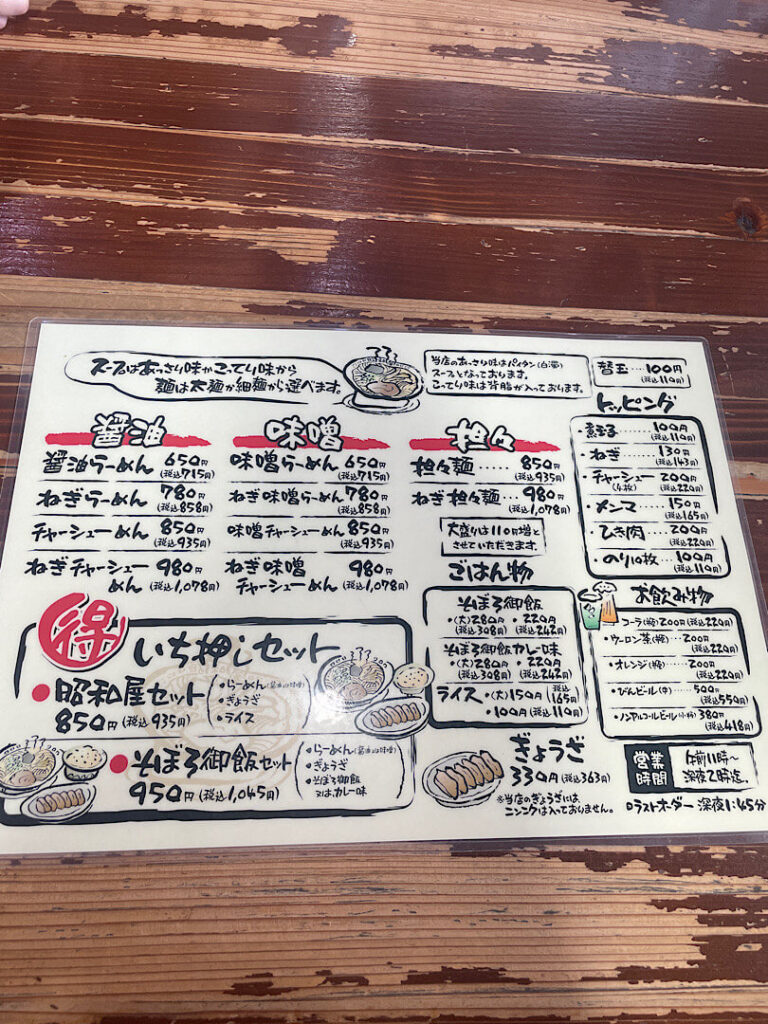 スープはあっさり味かこってり味から
麺は太麺か細麺から選べます。
当店のあっさり味はパイタン(白湯)
スープとなっております。
こってり味は背脂が入っております。
替玉…100円
(税込110円)
醤油
醤油らーめん 650円
(税込715円)
ねぎらーめん 780円
(税込858円)
チャーシューめん 850円
(税込935円)
ねぎチャーシュー 980円
めん (税込1,078円)
味噌
味噌らーめん 650円
(税込715円)
ねぎ味噌らーめん 780円
(税込858円)
味噌チャーシューめん 850円
(税込935円)
ねぎ味噌 980円
チャーシューめん (税込1,078円)
担々
担々麺…… 850円
(税込935円)
ねぎ担々麺… 980円
(税込1,078円)
大盛りは110円増と
させていただきます。
トッピング
・煮玉子 …… 100円
(税込110円)
・ねぎ …… 130円
(税込143円)
・チャーシュー 200円
(4枚) (税込220円)
・メンマ …… 150円
(税込165円)
・ひき肉 …… 200円
(税込220円)
・のり10枚… 100円
(税込110円)
ごはん物
そぼろ御飯
・(大)280円 ・220円
(税込308円) (税込242円)
そぼろ御飯カレー味
・(大)280円 ・220円
(税込308円) (税込242円)
ライス・(大)150円 (税込165円)
・100円 (税込110円)
お飲み物
・コーラ 200円(税込220円)
・ウーロン茶 …200円
(税込220円)
・オレンジ …200円
(税込220円)
・びんビール(中)… 500円
(税込550円)
・ノンアルコールビール 380円
(税込418円)
得 いち押しセット
●昭和屋セット
850円(税込935円)
・らーめん
・ぎょうざ
・ライス
●そぼろ御飯セット
950円(税込1,045円)
・らーめん
・ぎょうざ
・そぼろ御飯
又はカレー味
ぎょうざ
330円(税込363円)
※当店のぎょうざには
ニンニクは入っておりません。
営業時間
午前11時〜
深夜2時迄。
ロラストオーダー 深夜1:45分